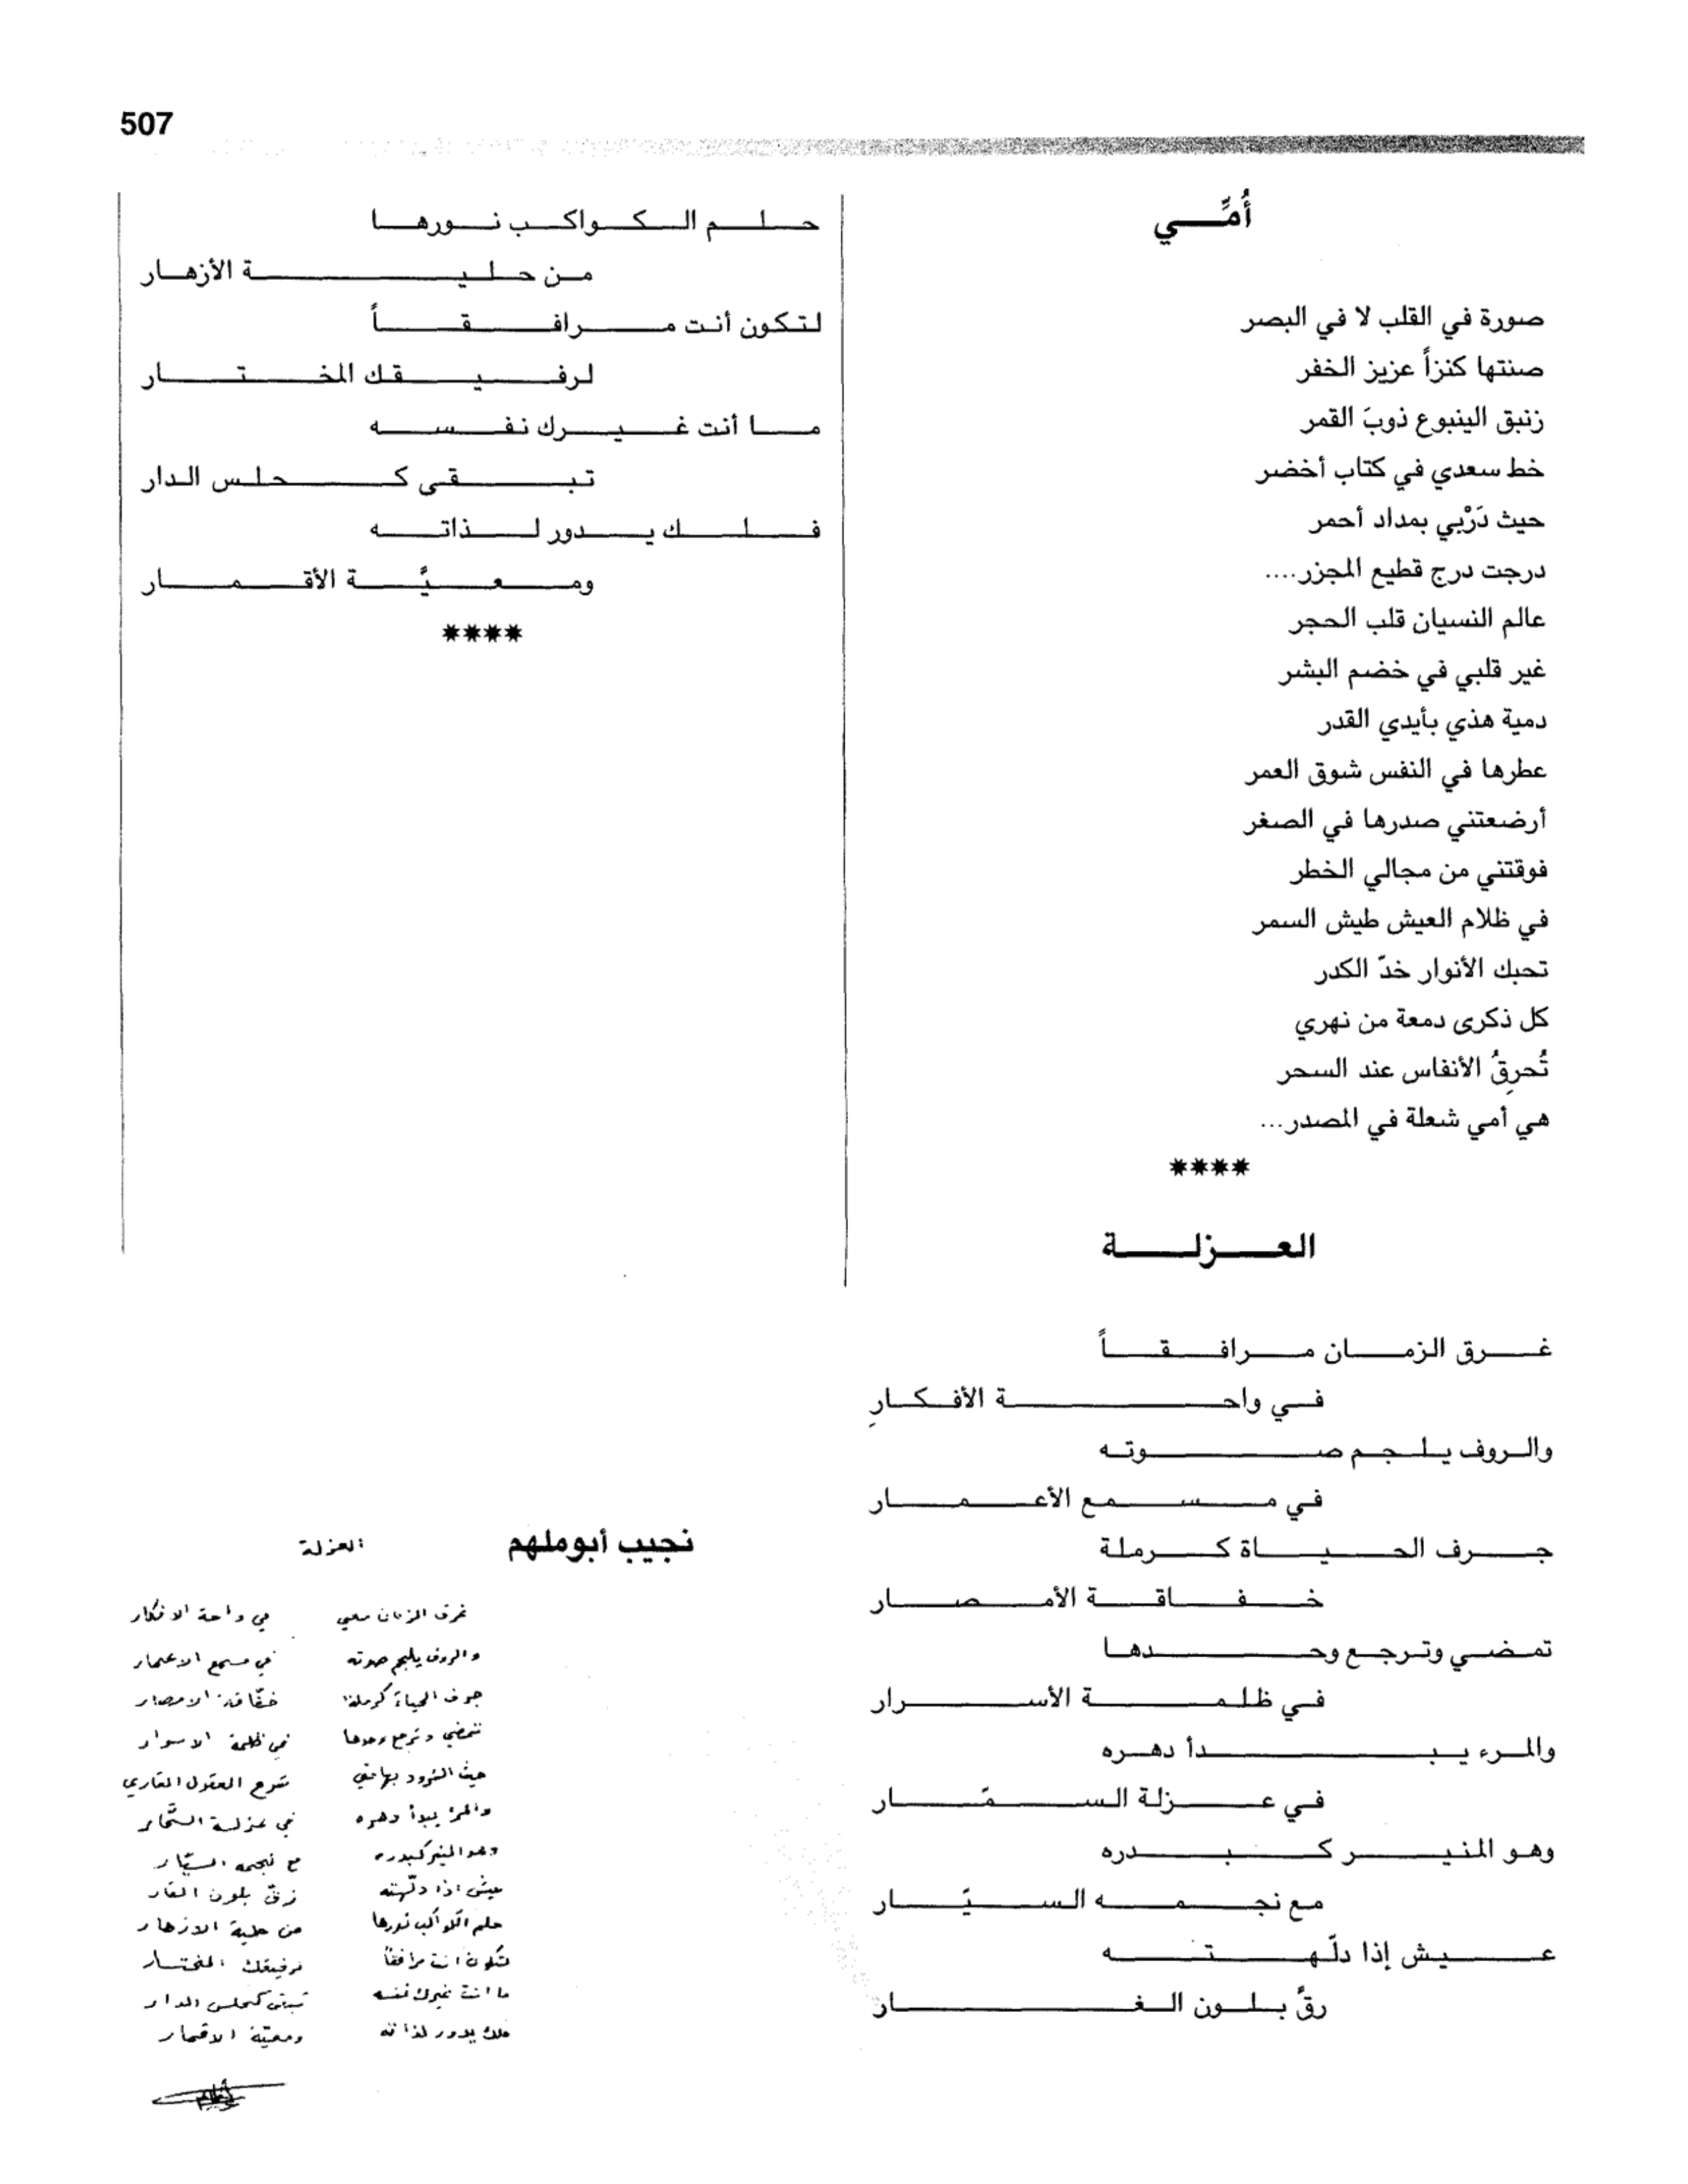 507
أُمِّي
صورة في القلب لا في البصر
صنتها كنزاً عزيز الخفر
زنبق الينبوع ذوبَ القمر
خط سعدي في كتاب أخضر
حيث دَرْبي بمداد أحمر
درجت درج قطيع المجزر....
عالم النسيان قلب الحجر
غير قلبي في خضم البشر
دمية هذي بأيدي القدر
عطرها في النفس شوق العمر
أرضعتني صدرها في الصغر
فوقتني من مجالي الخطر
في ظلام العيش طيش السمر
تحبك الأنوار خدّ الكدر
كل ذكرى دمعة من نهري
تُحرِقُ الأنفاس عند السحر
هي أمي شعلة في المصدر...
****
العزلة
غرق الزمان مرافقاً
في واحة الأفكارِ
والروف يلجم صوته
في مسمع الأعمار
جرف الحياة كرملة
خفاقة الأمصار
تمضي وترجع وحدها
في ظلمة الأسرار
والمرء يبدأ دهره
في عزلة السمّار
وهو المنير كبدره
مع نجمه السيّار
عيش إذا دلّهته
رقّ بلون الغار
حلم الكواكب نورها
من حلية الأزهار
لتكون أنت مرافقاً
لرفيقك المختار
ما أنت غيرك نفسه
تبقى كحلس الدار
فلك يدور لذاته
ومعيَّة الأقمار
****
نجيب أبوملهم
العزلة
غرق الزمان معي في واحة الافكار
والروف يلجم صوته في مسمع الاعمار
جرف الحياة كرملة خفّاقة الامصار
تمضي وترجع وحدها في ظلمة الاسرار
حيث الشرود شرع العقول العاري
والمرء يبدأ دهره في عزلة السمّار
وهو المنير كبدره مع نجمه السيّار
عيش اذا دلّهته زقّ بلون القار
حلم الكواكب نورها من حلية الازهار
لتكون انت مرافقاً لرفيقك المختار
ما انت غيرك نفسه تبقى كحلس الدار
فلك يدور لذاته ومعيّة الاقمار